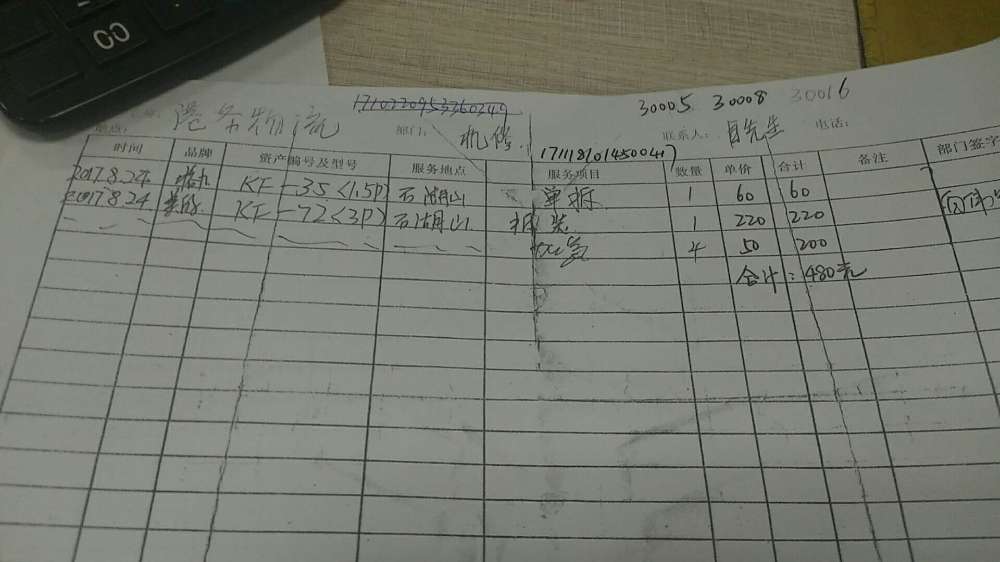 CC
港务物流 1710220953360249 30005 30008 30016
地点： 部门： 机修 联系人： 白先生 电话：
171118101450047
时间 品牌 资产编号及型号 服务地点 服务项目 数量 单价 合计 备注 部门签字
2017.8.24 KF-35<1.5P> 石湖山 单拆 1 60 60
2017.8.24 KF-72<3P> 石湖山 拆装 1 220 220
加氟 4 50 200
合计：480元